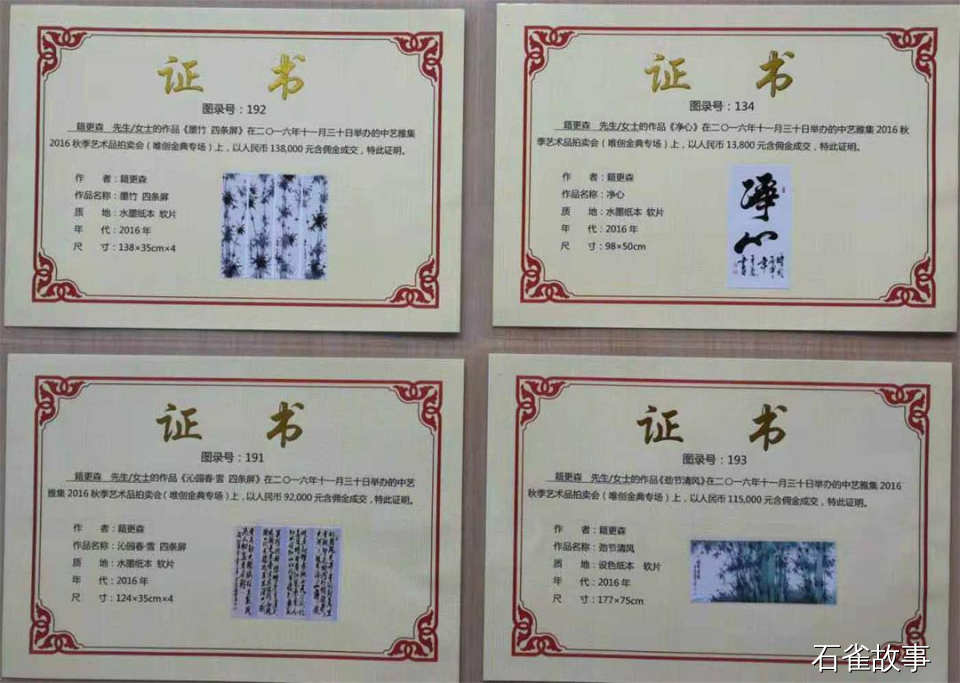 证 书
图录号：192
籍更森 先生/女士的作品《墨竹 四条屏》在二〇一六年十一月三十日举办的中艺雅集
2016秋季艺术品拍卖会（唯创金典专场）上，以人民币138,000元含佣金成交，特此证明。
作 者：籍更森
作品名称：墨竹 四条屏
质 地：水墨纸本 软片
年 代：2016年
尺 寸：138×35cm×4
证 书
图录号：134
籍更森 先生/女士的作品《净心》在二〇一六年十一月三十日举办的中艺雅集2016秋
季艺术品拍卖会（唯创金典专场）上，以人民币13,800元含佣金成交，特此证明。
作 者：籍更森
作品名称：净心
质 地：水墨纸本 软片
年 代：2016年
尺 寸：98×50cm
净心
证 书
图录号：191
籍更森 先生/女士的作品《沁园春·雪 四条屏》在二〇一六年十一月三十日举办的中艺
雅集2016秋季艺术品拍卖会（唯创金典专场）上，以人民币92,000元含佣金成交，特此证明。
作 者：籍更森
作品名称：沁园春·雪 四条屏
质 地：水墨纸本 软片
年 代：2016年
尺 寸：124×35cm×4
证 书
图录号：193
籍更森 先生/女士的作品《劲节清风》在二〇一六年十一月三十日举办的中艺雅集2016
秋季艺术品拍卖会（唯创金典专场）上，以人民币115,000元含佣金成交，特此证明。
作 者：籍更森
作品名称：劲节清风
质 地：设色纸本 软片
年 代：2016年
尺 寸：177×75cm
石雀故事